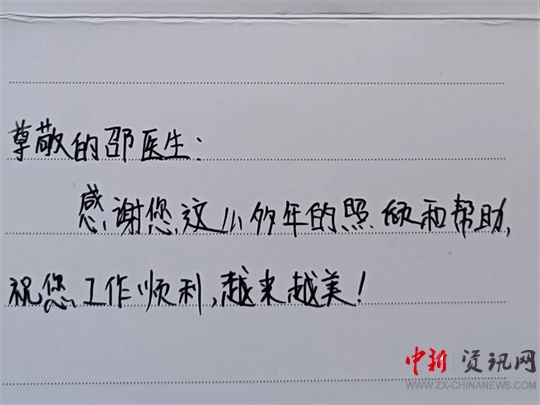 尊敬的邵医生：
感谢您这么多年的照顾和帮助，
祝您工作顺利，越来越美！
中新资讯网
WWW.ZX-CHINANEWS.COM